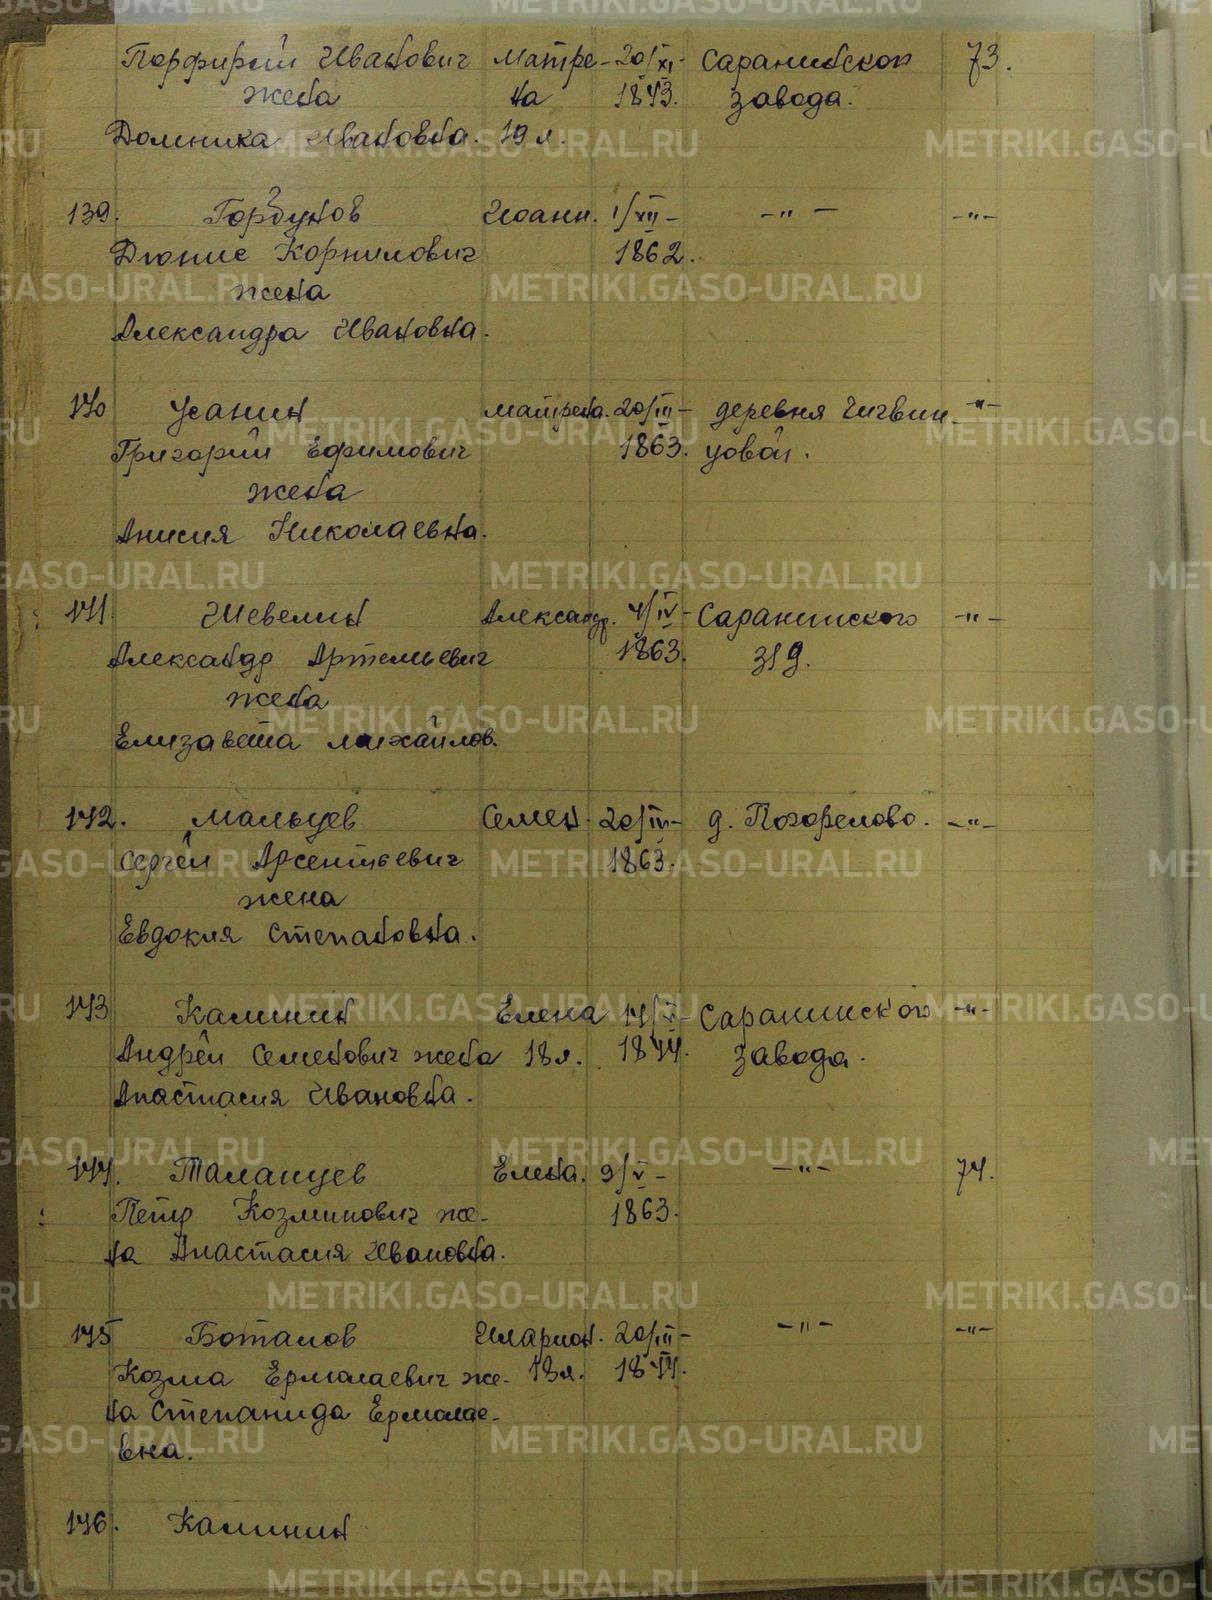 Порфирий Иванович Матре- 20/XI- Саранинскои 73.
жена на 1843. завода.
Домника Ивановна. 19 л.
139. Горбунов Иоанн. 1/XII- -"- -"-
Дионис Корнилович 1862.
жена
Александра Ивановна.
140 Усанин Матрена. 20/III- деревня Чигвин- -"-
Григорий Ефимович 1863. цовой.
жена
Анисия Николаевна.
141. Шевелин Александр. 4/IV- Саранинского -"-
Александр Артемьевич 1863. з/д.
жена
Елизавета Михайлов.
142. Мальцев Семен. 20/IV- д. Погорелово. -"-
Сергей Арсентьевич 1863.
жена
Евдокия Степановна.
143 Калинин Елена 14/V- Саранинского -"-
Андрей Семенович жена 18 л. 1844. завода.
Анастасия Ивановна.
144. Таланцев Елена. 9/V- -"- 74.
Петр Козминович же- 1863.
на Анастасия Ивановна.
145 Боталов Иларион. 20/III- -"- -"-
Козма Ермалаевич же- 18 л. 1844.
на Степанида Ермалае-
вна.
146. Калинин
METRIKI.GASO-URAL.RU